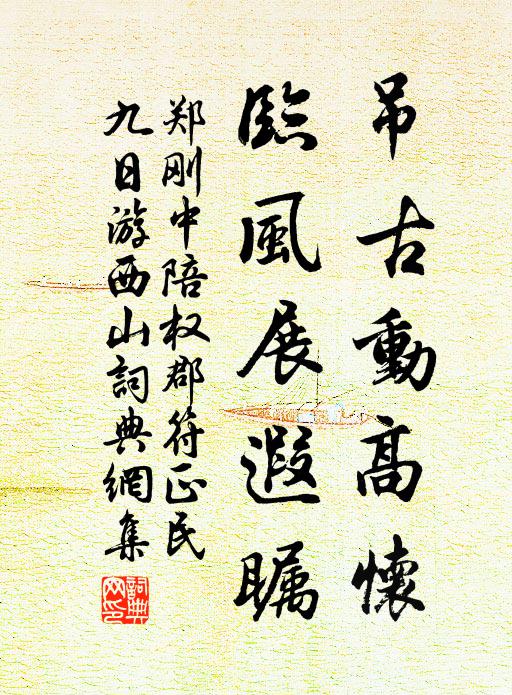 吊古動高懷
臨風展遐瞩
郑刚中陪权郡符正民
九日游西山詞典網集
詞典網印